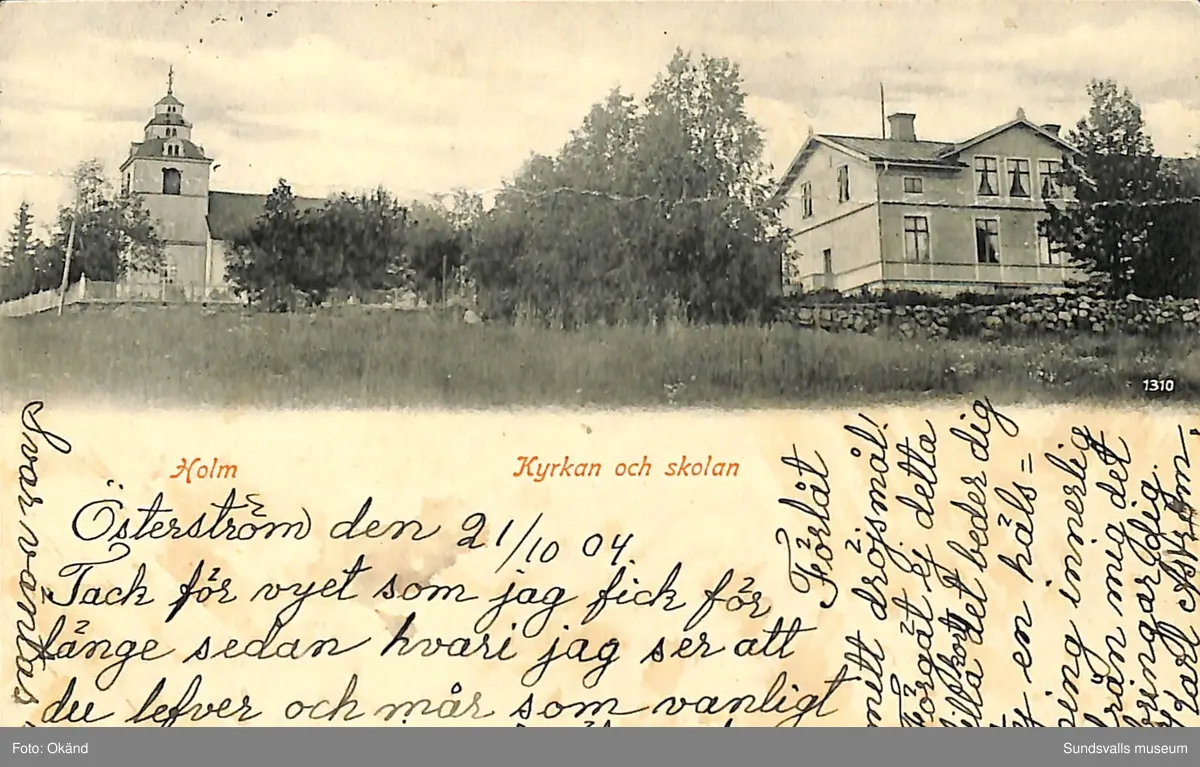 1310
Holm
Kyrkan och skolan
Österström den 21/10 04.
Tack för vyet som jag fick för
länge sedan hvari jag ser att
du lefver och mår som vanligt
Förlåt
mitt dröjsmål!
Förgät ej detta
lilla kort det beder dig
en häls=
ning innerlig
från mig det
bringar dig.
Karl Åström.
Svar väntas
Foto: Okänd
Sundsvalls museum